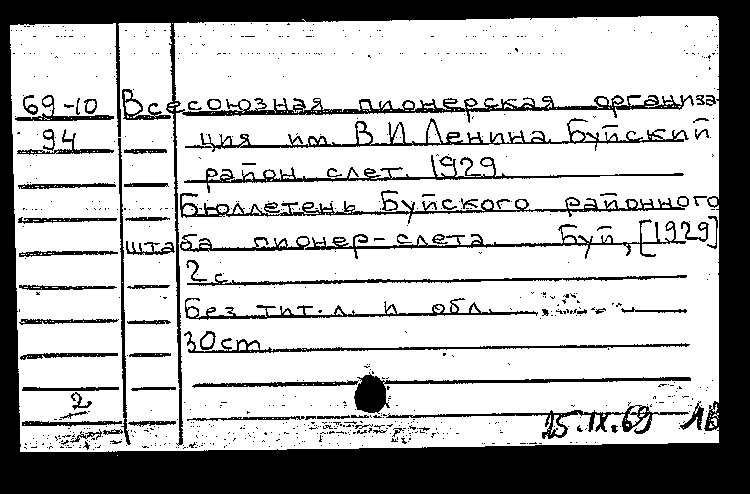 69-10 Всесоюзная пионерская организа-
94 ция им. В.И.Ленина. Буйский
район. слет. 1929.
Бюллетень Буйского районного
штаба пионер-слета. Буй, [1929]
2 с.
Без тит. л. и обл.
30 cm.
2
25.IX.69 1В